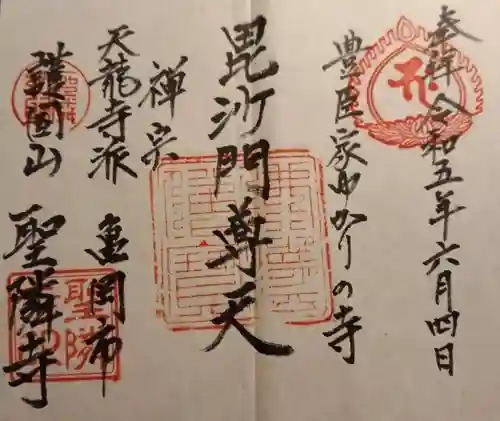 奉拝 令和五年六月四日
豊臣家ゆかりの寺
毘沙門尊天
禅宗
天龍寺派
亀岡市
謹固山
聖隣寺
聖隣